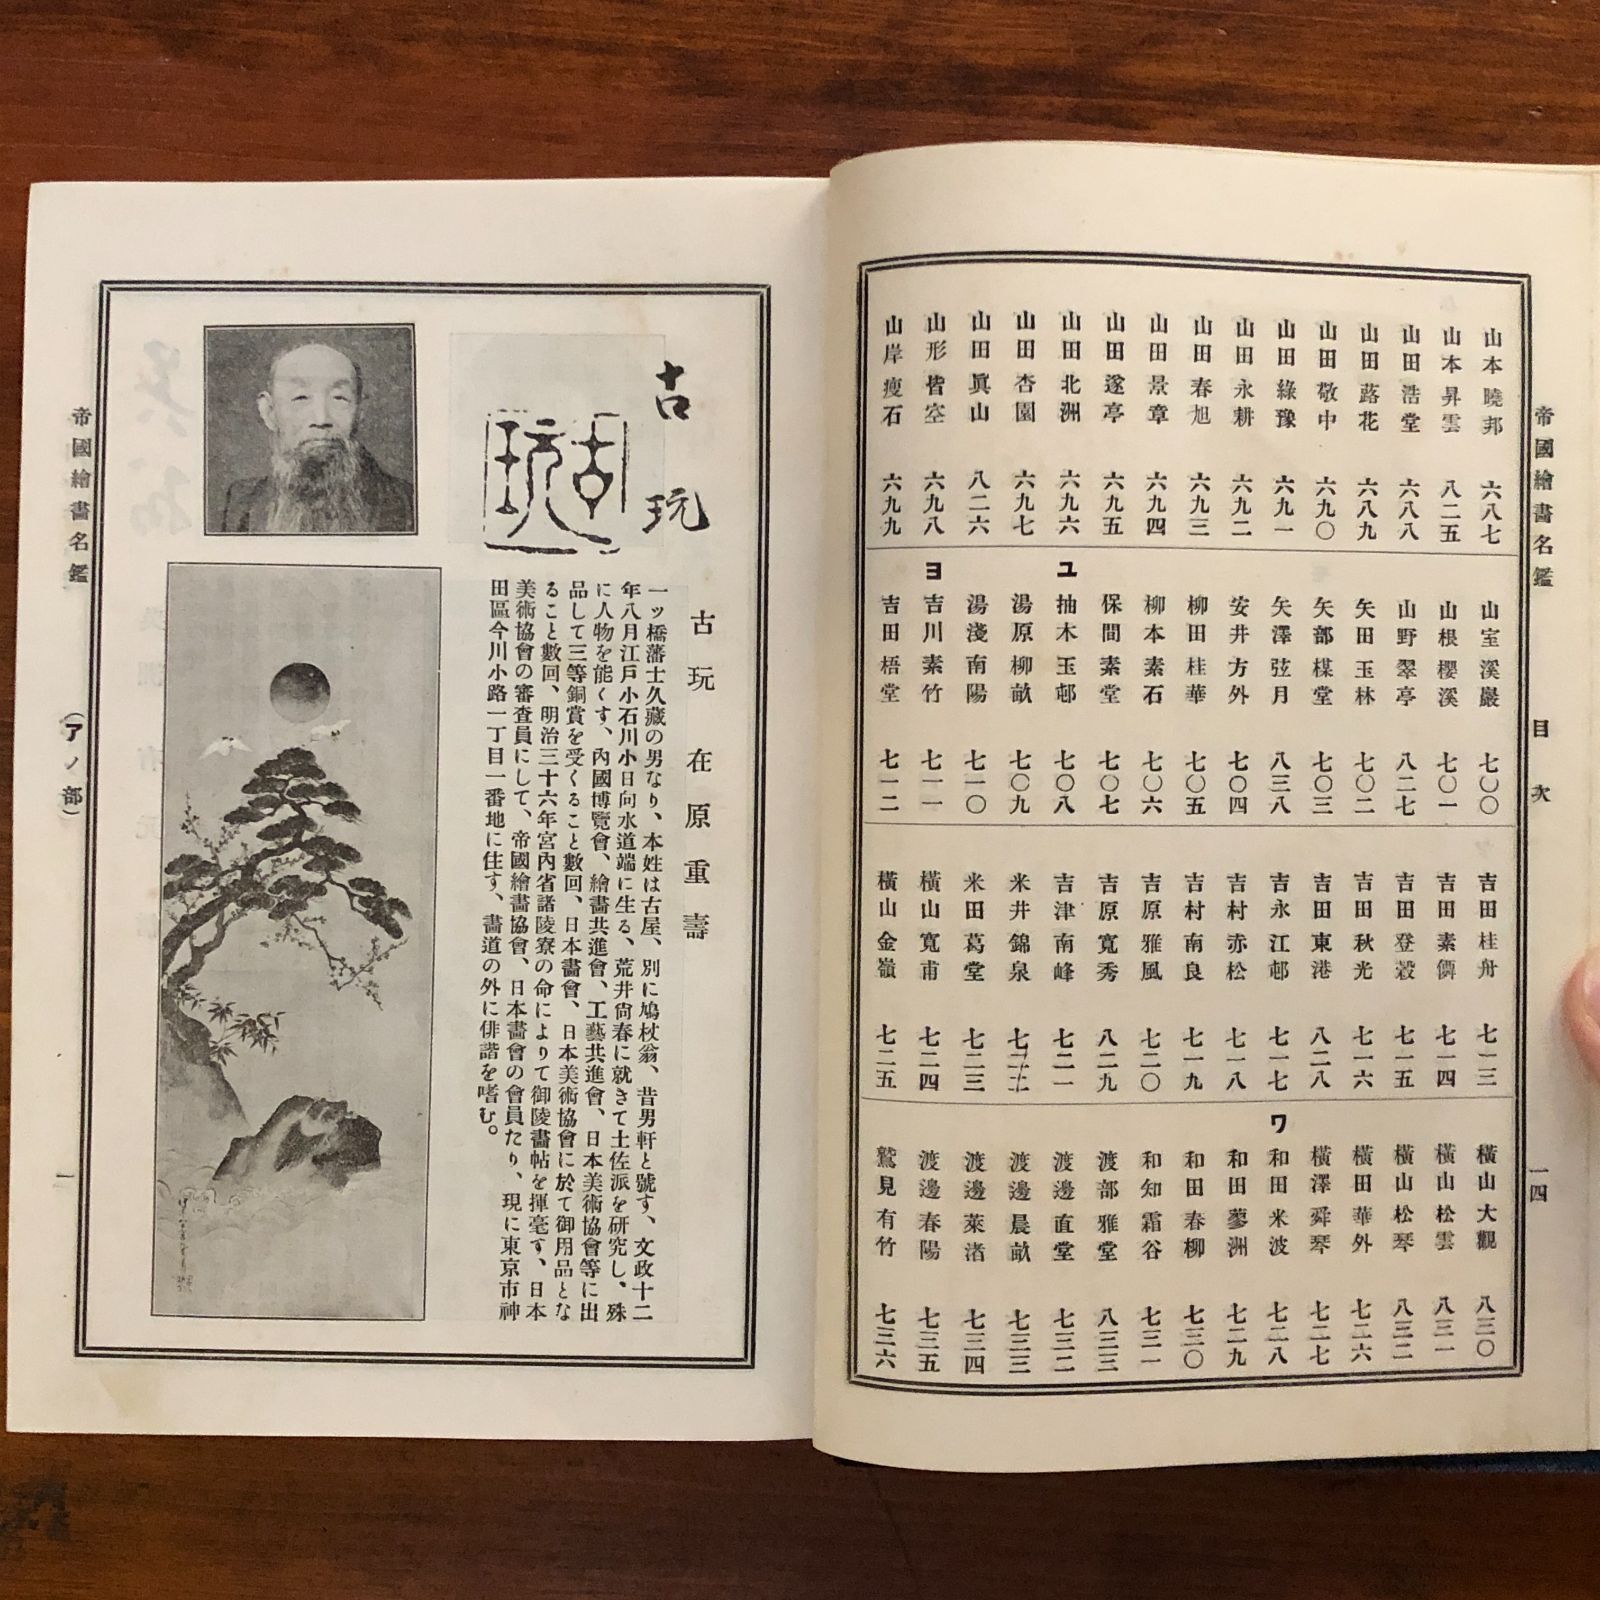 帝國繪畫名鑑
目次
一四
山本曉邦 六八七
山本昇雲 八二五
山田浩堂 六八八
山田蕗花 六八九
山田敬中 六九〇
山田綠豫 六九一
山田永耕 六九二
山田春旭 六九三
山田景章 六九四
山田遂亭 六九五
山田北洲 六九六
山田杏園 六九七
山田眞山 八二六
山形皆空 六九八
山岸瘦石 六九九
山室溪巖 七〇〇
山根櫻溪 七〇一
山野翠亭 八二七
矢田玉林 七〇二
矢部楳堂 七〇三
矢澤弦月 八三八
安井方外 七〇四
柳田桂華 七〇五
柳本素石 七〇六
保間素堂 七〇七
ユ
抽木玉邨 七〇八
湯原柳畝 七〇九
湯淺南陽 七一〇
ヨ
吉川素竹 七一一
吉田梧堂 七一二
吉田桂舟 七一三
吉田素儕 七一四
吉田登穀 七一五
吉田秋光 七一六
吉田東港 八二八
吉永江邨 七一七
吉村赤松 七一八
吉村南良 七一九
吉原雅風 七二〇
吉原寬秀 八二九
吉津南峰 七二一
米井錦泉 七二二
米田葛堂 七二三
橫山寬甫 七二四
橫山金嶺 七二五
橫山大觀 八三〇
橫山松雲 八三一
橫山松琴 八三二
橫田華外 七二六
橫澤舜琴 七二七
ワ
和田米波 七二八
和田蓼洲 七二九
和田春柳 七三〇
和知霜谷 七三一
渡部雅堂 八三三
渡邊直堂 七三二
渡邊晨畝 七三三
渡邊萊渚 七三四
渡邊春陽 七三五
鷲見有竹 七三六
古玩
古玩
古玩 在原重壽
一ッ橋藩士久藏の男なり、本姓は古屋、別に鳩杖翁、昔男軒と號す、文政十二
年八月江戶小石川小日向水道端に生る、荒井尙春に就きて土佐派を研究し、殊
に人物を能くす、內國博覽會、繪畫共進會、工藝共進會、日本美術協會等に出
品して三等銅賞を受くること數回、日本畫會、日本美術協會に於て御用品とな
ること數回、明治三十六年宮內省諸陵寮の命によりて御陵畫帖を揮毫す、日本
美術協會の審査員にして、帝國繪畫協會、日本畫會の會員たり、現に東京市神
田區今川小路一丁目一番地に住す、畫道の外に俳諧を嗜む。
帝國繪畫名鑑
（アノ部）
一